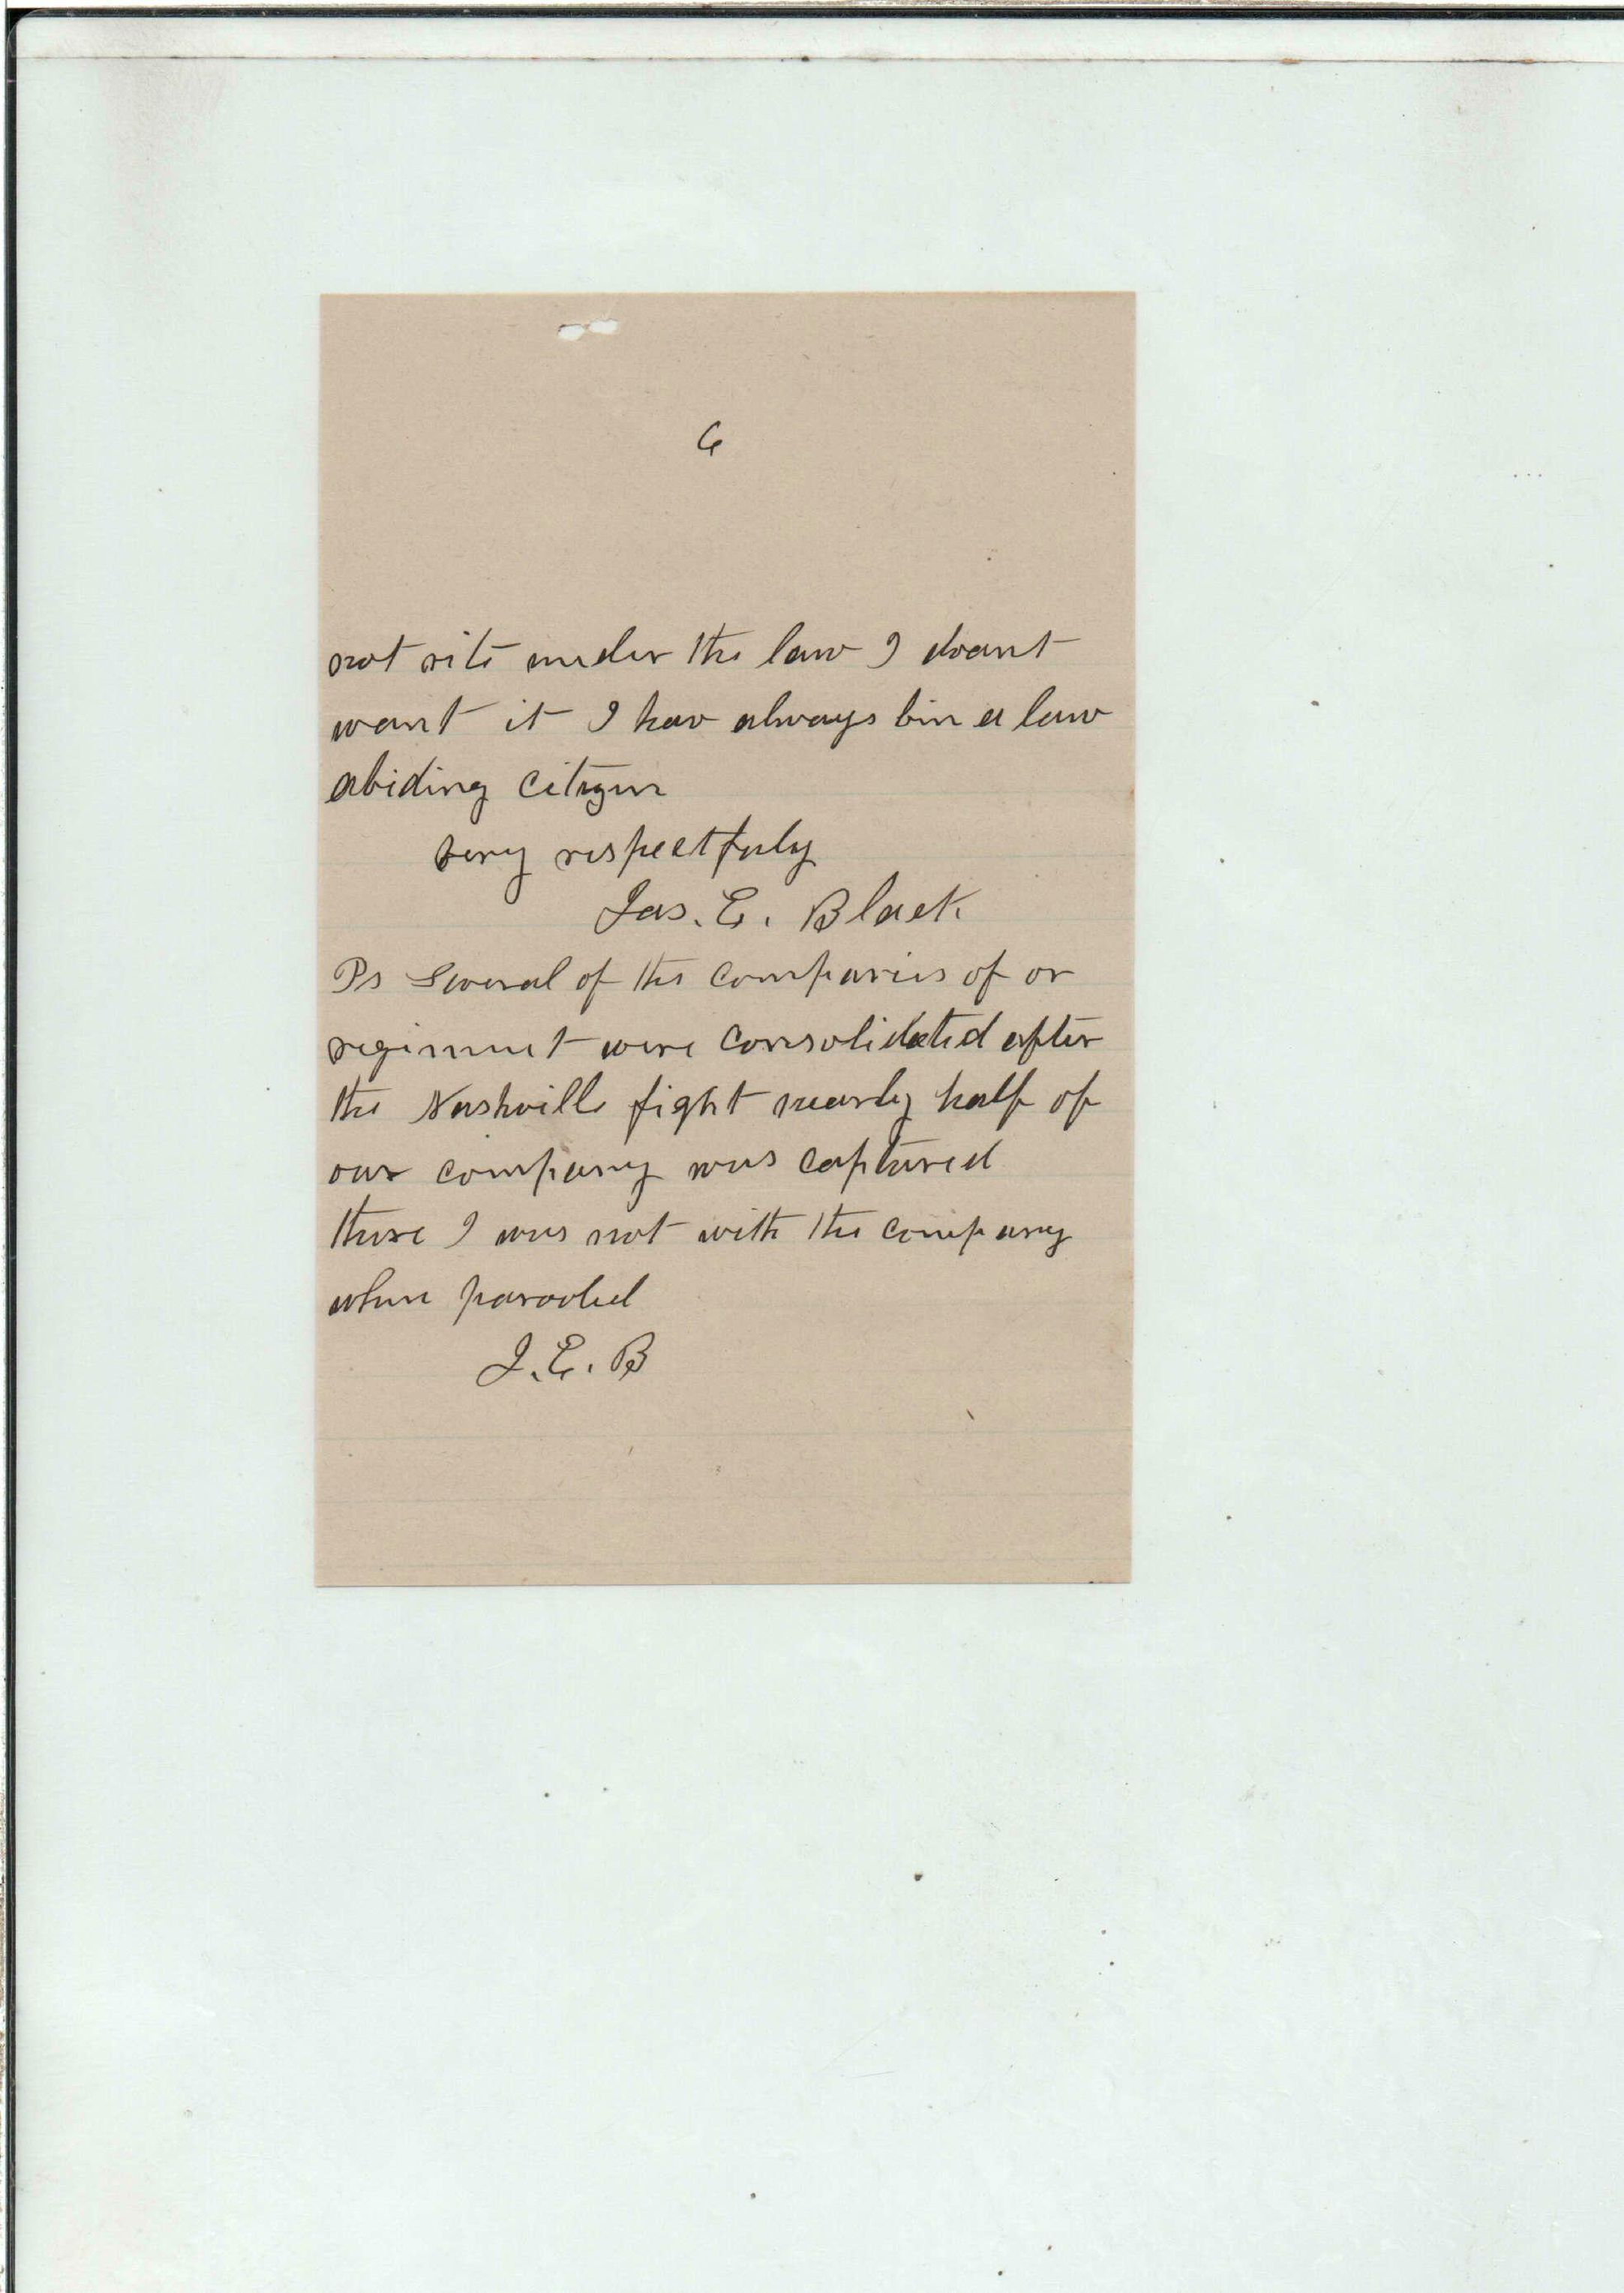 6
not rite under the law I doant
want it I hav always bin a law
abiding citizen
very respectfuly
Jas. E. Black
Ps Several of the companies of or
regiment were consolidated after
the Nashville fight nearly half of
our company was captured
there I was not with the company
when parooled
J. E. B